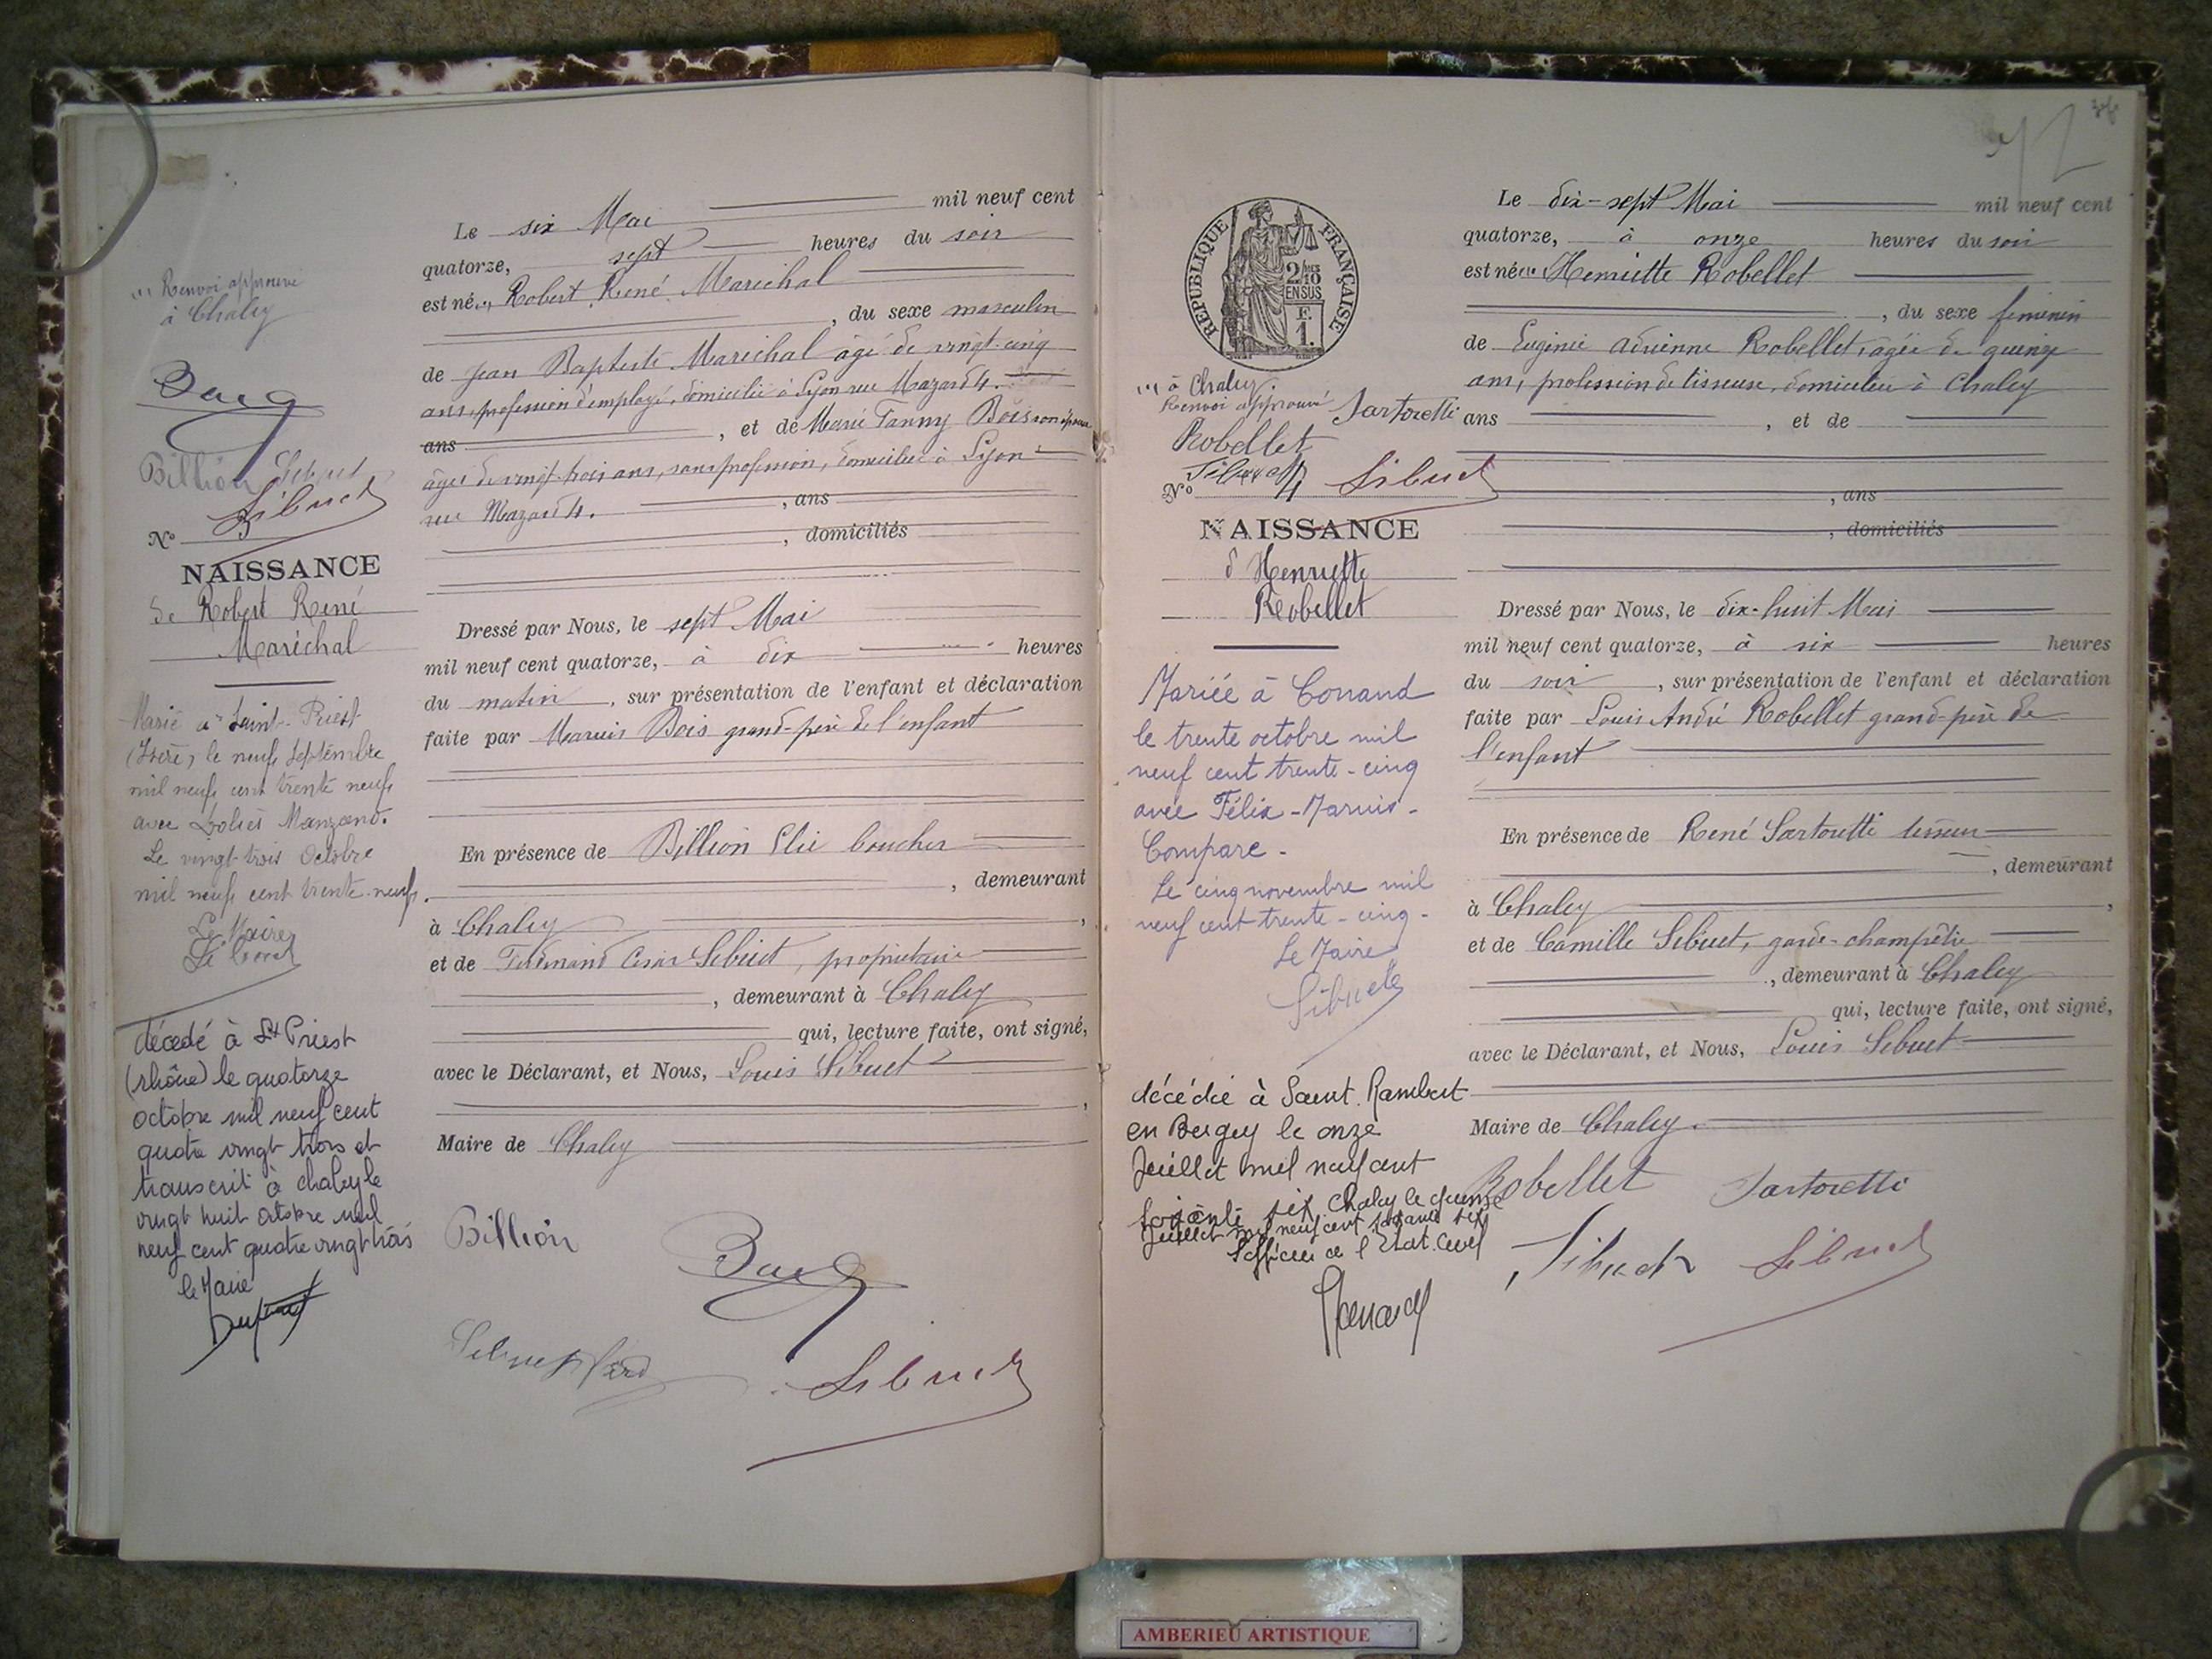 Renvoi approuvé
à Chaley
Billion Sibuet
Sibuet
N° 3
NAISSANCE
de Robert René
Maréchal
Marié à Saint-Priest
(Isère) le neuf Septembre
mil neuf cent trente neuf
avec Manzano.
Le vingt-trois Octobre
mil neuf cent trente-neuf.
Le Maire
décédé à St Priest
(rhône) le quatorze
octobre mil neuf cent
quatre vingt trois et
transcrit à chaley le
vingt huit octobre mil
neuf cent quatre vingt trois
le Maire
Le six Mai mil neuf cent
quatorze, sept heures du soir
est né (1) Robert René Marechal
, du sexe masculin
de Jean Baptiste Marechal âgé de vingt-cinq
ans, profession d'employé, domicilié à Lyon rue Mazard 4.
ans , et de Marie Fanny Bois son épouse
âgée de vingt-trois ans, sans profession, domiciliée à Lyon
rue Mazard 4. , ans
, domiciliés
Dressé par Nous, le sept Mai
mil neuf cent quatorze, à dix heures
du matin , sur présentation de l'enfant et déclaration
faite par Marius Bois grand-père de l'enfant
En présence de Billion Elie boucher
, demeurant
à Chaley ,
et de Ferdinand César Sibuet, propriétaire
, demeurant à Chaley
qui, lecture faite, ont signé,
avec le Déclarant, et Nous, Louis Sibuet
,
Maire de Chaley
Billion
Sibuet Ferd
Sibuet
RÉPUBLIQUE FRANÇAISE
2/10
EN SUS
F.
1.
(1) à Chaley.
Renvoi approuvé Sartoretti
Robellet
Sibuet
N° 4 Sibuet
NAISSANCE
d'Henriette
Robellet
Mariée à Conand
le trente octobre mil
neuf cent trente-cinq
avec Félix-Marius-
Compare.
Le cinq novembre mil
neuf cent trente-cinq-
Le Maire
Sibuet
décédée à Saint Rambert
en Bugey le onze
Juillet mil neuf cent
soixante six Chaley le quinze
Juillet mil neuf cent soixante six
l'officier de l'Etat Civil
Le dix-sept Mai mil neuf cent
quatorze, à onze heures du soir
est née (1) Henriette Robellet
, du sexe féminin
de Eugénie Adrienne Robellet, âgée de quinze
ans, profession de tisseuse, domiciliée à Chaley
ans , et de
, ans
, domiciliés
Dressé par Nous, le dix-huit Mai
mil neuf cent quatorze, à six heures
du soir , sur présentation de l'enfant et déclaration
faite par Louis André Robellet grand-père de
l'enfant
En présence de René Sartoretti tisseur
, demeurant
à Chaley ,
et de Camille Sibuet, garde-champêtre
, demeurant à Chaley
qui, lecture faite, ont signé,
avec le Déclarant, et Nous, Louis Sibuet
Maire de Chaley.
Robellet Sartoretti
Sibuet Sibuet
AMBERIEU ARTISTIQUE